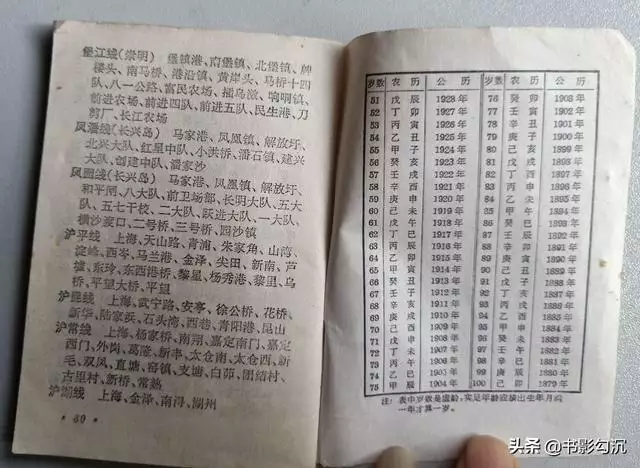 堡江线(崇明) 堡镇港、南堡镇、北堡镇、牌
楼头、南马桥、港沿镇、黄岸头、马桥十四
队、八一公路、富民农场、插鸟滧、响哃镇、
前进农场、前进四队、前进五队、民生港、刀
剪厂、长江农场
凤潘线(长兴岛) 马家港、凤凰镇、解放圩、
北兴大队、红星中队、小洪桥、潘石镇、建兴
大队、创建中队、潘家沙
凤圆线(长兴岛) 马家港、凤凰镇、解放圩、
和平闸、八大队、前卫场部、长明大队、五大
队、五七干校、二大队、跃进大队、一大队、
横沙渡口、二号桥、三号桥、四沙镇
沪平线 上海、天山路、青浦、朱家角、山湾、
淀峰、西岑、马兰港、金泽、尖田、新南、芦
墟、东玲、东西港桥、黎星、杨秀港、黎里、乌
桥、平望大桥、平望
上海、武宁路、安亭、徐公桥、花桥、
新华、陆家浜、石头湾、西巷、青阳港、昆山
沪常线 上海、杨家桥、南翔、嘉定南门、嘉定
西门、外岗、葛隆、新丰、太仓南、太仓西、新
毛、双凤、直塘、窑镇、支塘、白茆、团结村、
古里村、新桥、常熟
沪湖线 上海、金泽、南浔、湖州
岁数 农历 公历 岁数 农历 公历
51 戊辰 1928年 76 癸卯 1903年
52 丁卯 1927年 77 壬寅 1902年
53 丙寅 1926年 78 辛丑 1901年
54 乙丑 1925年 79 庚子 1900年
55 甲子 1924年 80 己亥 1899年
56 癸亥 1923年 81 戊戌 1898年
57 壬戌 1922年 82 丁酉 1897年
58 辛酉 1921年 83 丙申 1896年
59 庚申 1920年 84 乙未 1895年
60 己未 1919年 85 甲午 1894年
61 戊午 1918年 86 癸巳 1893年
62 丁巳 1917年 87 壬辰 1892年
63 丙辰 1916年 88 辛卯 1891年
64 乙卯 1915年 89 庚寅 1890年
65 甲寅 1914年 90 己丑 1889年
66 癸丑 1913年 91 戊子 1888年
67 壬子 1912年 92 丁亥 1887年
68 辛亥 1911年 93 丙戌 1886年
69 庚戌 1910年 94 乙酉 1885年
70 己酉 1909年 95 甲申 1884年
71 戊申 1908年 96 癸未 1883年
72 丁未 1907年 97 壬午 1882年
73 丙午 1906年 98 辛巳 1881年
74 乙巳 1905年 99 庚辰 1880年
75 甲辰 1904年 100 己卯 1879年
注:表中岁数是虚龄,实足年龄应按出生年月满
一年才算一岁。
头条 @书影勾沉